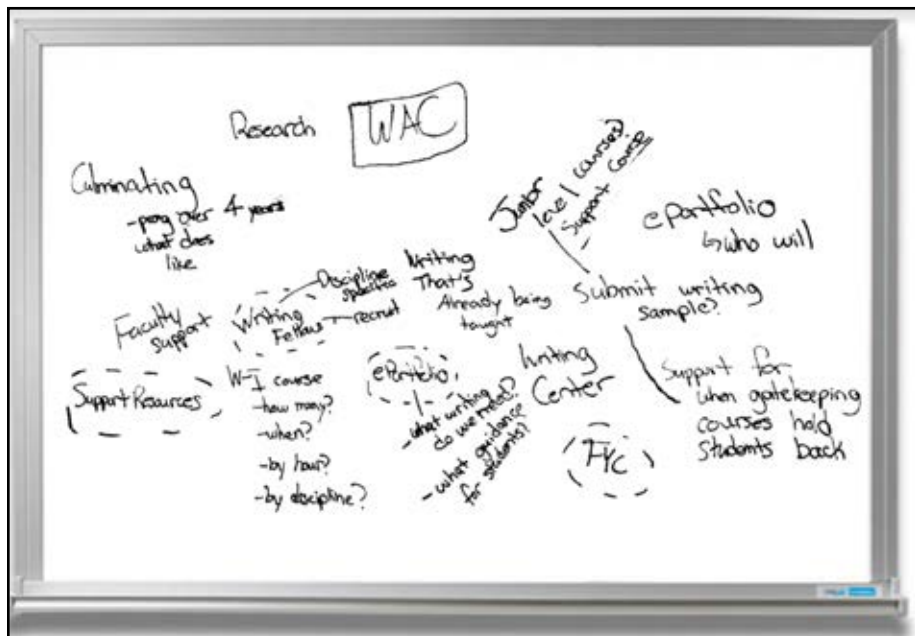 Research
WAC
Culminating
-prog over 4 years
what does
like
Junior
level courses?
Support course
ePortfolio
↳who will
Faculty
support
Writing
Fellows
Discipline
specific
recruit
Writing
That's
Already being
taught
Submit writing
sample?
Support Resources
W-I course
-how many?
-when?
-by hour?
-by discipline?
ePortfolio
-what writing
do we need?
-what guidance
for students?
Writing
Center
FYC
Support for
when gatekeeping
courses hold
students back